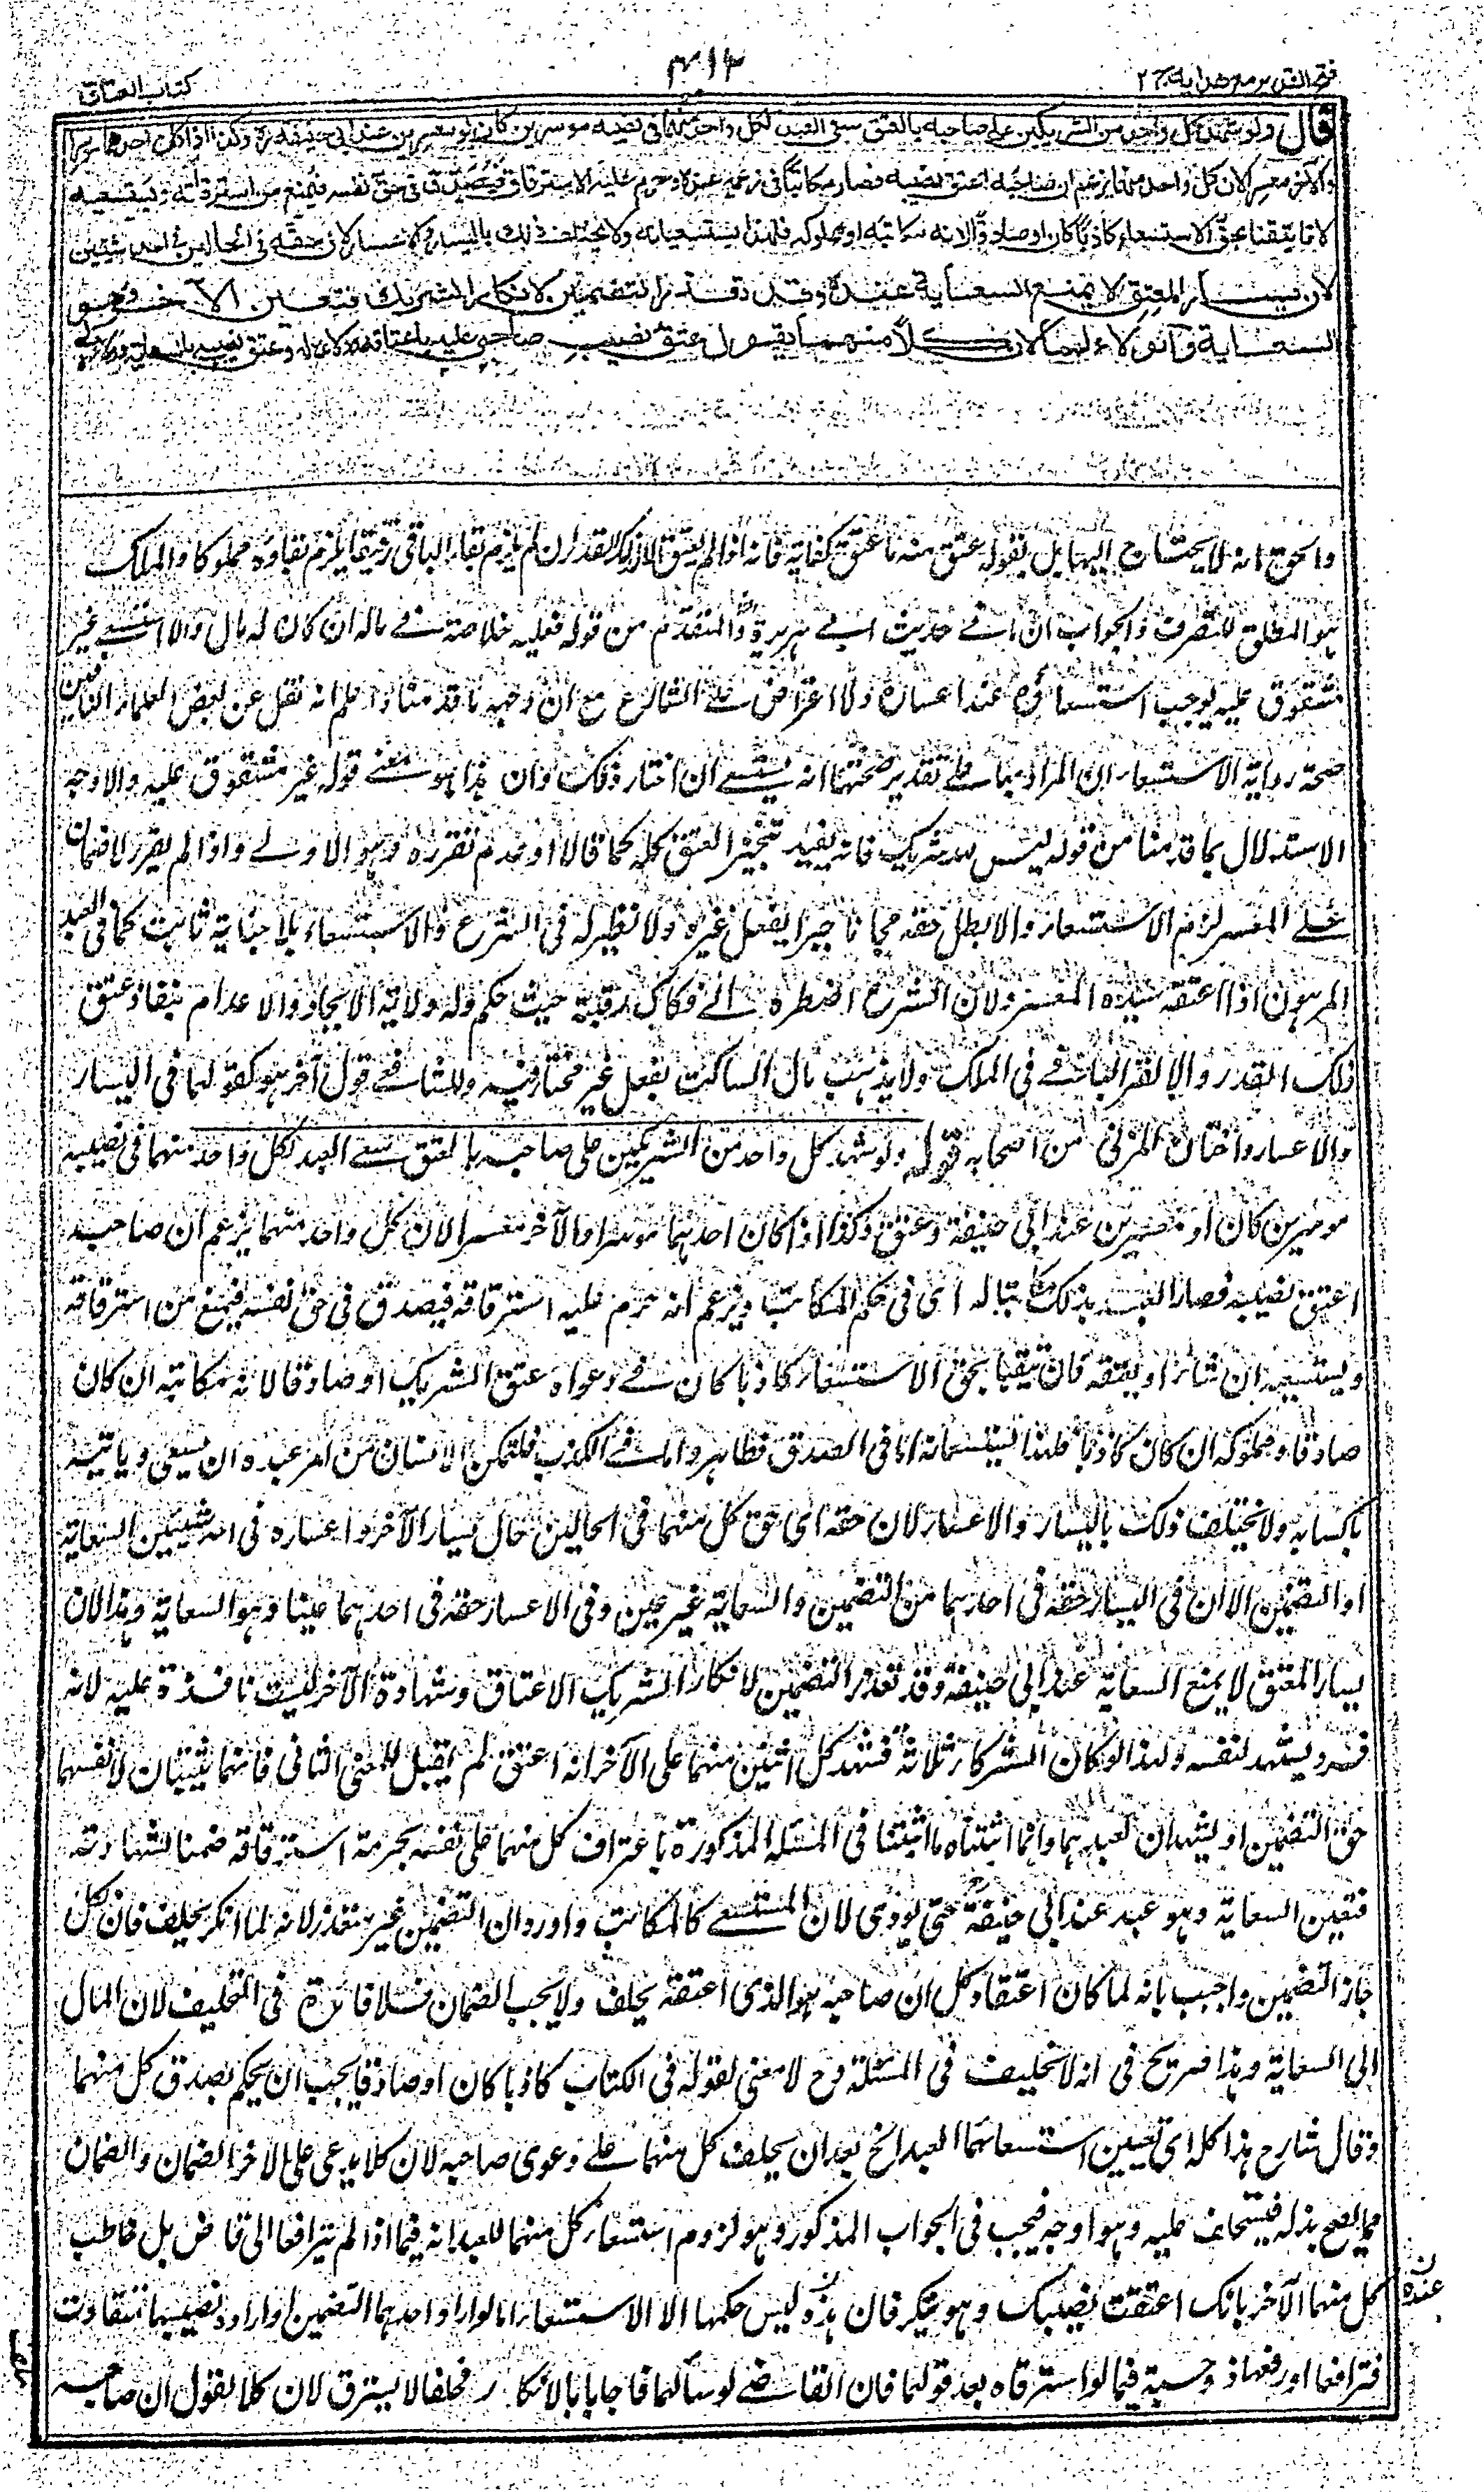 فتح القدير مع هدايه ج ٢
٣١٣
كتاب العتاق
قال ولو شهد كل واحد من الشريكين على صاحبه بالعتق سعى العبد لكل واحد منهما في نصيبه موسرين كانا او معسرين عند ابي حنيفة وكذا اذا كان احدهما موسرا
والآخر معسرا لان كل واحد منهما يزعم ان صاحبه اعتق نصيبه فصار مكاتبا في زعمه عنده وحرم عليه الاسترقاق فيصدق في حق نفسه فيمنع من استرقاقه ويستسعيه
لانا تيقنا بحق الاستسعاء كاذبا كان او صادقا لانه مكاتبه او مملوكه فلهذا يستسعيانه ولا يختلف ذلك باليسار والاعسار لان حقه في الحالين في احد شيئين
لان يسار المعتق لا يمنع السعاية عنده وقد تعذر التضمين لانكار الشريك فتعين الآخر وهو
السعاية والولاء لهما لان كلا منهما يقول عتق نصيب صاحبي عليه باعتاقه وولاؤه له وعتق نصيبي بالسعاية وولاؤه لي
والحق انه لا يحتاج اليها بل بقوله عتق منه ما عتق كفاية فانه اذا لم يعتق الا ذلك القدر ان لم يلزم بقاء الباقي رقيقا يلزم بقاؤه مملوكا والملك
هو المطلق للتصرف والجواب ان في حديث ابي هريرة المتقدم من قوله فعليه خلاصه في ماله ان كان له مال والا استسعي غير
مشقوق عليه يوجب استسعاؤه عند اعساره ولا اعتراض على الشارع مع ان وجهه ما قدمنا واعلم انه نقل عن بعض العلماء القائلين
صحة رواية الاستسعاء ان المراد بها على تقدير صحتها انه يستسعى ان اختار ذلك وان هذا هو معنى قوله غير مشقوق عليه والاوجه
الاستدلال بما قدمنا من قوله ليس لله شريك فانه يفيد تنجيز العتق كله كما قالا او عدم تقرره وهو الاولى واذا لم يقرر لا ضمان
على المعسر لزم الاستسعاء والا بطل حقه مجانا جبرا بفعل غيره ولا نظير له في الشرع والاستسعاء بلا جناية ثابت كما في العبد
المرهون اذا اعتقه سيده المعسر ولان الشرع اضطره الى فكاك رقبته حيث حكم وله ولاية الايجاد والاعدام بنفاذ عتق
ذلك المقدر والا لفر الباقي في الملك ولا يذهب مال الساكت بفعل غير مختار فيه وللشافعي قول آخر هو كقولهما في اليسار
والاعسار واختاره المزني من اصحابه قوله ولو شهد كل واحد من الشريكين على صاحبه بالعتق سعى العبد لكل واحد منهما في نصيبه
موسرين كان او معسرين عند ابي حنيفة وعتق وكذا اذا كان احدهما موسرا والآخر معسرا لان كل واحد منهما يزعم ان صاحبه
اعتق نصيبه فصار العبد بذلك مكاتبا له اى في حكم المكاتب ويزعم انه حرم عليه استرقاقه فيصدق في حق نفسه فيمنع من استرقاقه
ويستسعيه ان شاء او يعتقه فان تيقنا بحق الاستسعاء كاذبا كان في دعواه عتق الشريك او صادقا لانه مكاتبه ان كان
صادقا ومملوكه ان كان كاذبا فلهذا يستسعيانه اما في الصدق فظاهر واما في الكذب فلتمكن الانسان من امر عبده ان يسعى وياتيه
باكسابه ولا يختلف ذلك باليسار والاعسار لان حقه اى حق كل منهما في الحالين حال يسار الآخر واعساره في احد شيئين السعاية
او التضمين الا ان في اليسار حقه في احدهما من التضمين والسعاية غير عين وفي الاعسار حقه في احدهما عينا وهو السعاية وهذا لان
يسار المعتق لا يمنع السعاية عند ابي حنيفة وقد تعذر التضمين لانكار الشريك الاعتاق وشهادة الآخر ليست نافذة عليه لانه
فسه ويشهد لنفسه ولهذا لو كان الشركاء ثلاثة فشهد كل اثنين منهما على الآخر انه اعتق لم يقبل للمعنى الثاني فانهما يثبتان لانفسهما
حق التضمين او يشهدان لعبدهما وانما اثبتناه ما اثبتنا في المسئلة المذكورة باعتراف كل منهما على نفسه بحرمة استرقاقه ضمنا لشهادته
فتعين السعاية وهو عبد عند ابي حنيفة حتى يؤدى لان المستسعى كالمكاتب واورد ان التضمين غير متعذر لانه لما انكر يحلف فان نكل
جاز التضمين واجيب بانه لما كان اعتقاد كل ان صاحبه هو الذى اعتقه يحلف ولا يجب الضمان فلا فائدة في التحليف لان المال
الى السعاية وهذا صريح في انه لا تحليف في المسئلة وح لا معنى لقوله في الكتاب كاذبا كان او صادقا يجب ان يحكم بصدق كل منهما
وقال شارح هذا كله اى تعيين استسعائهما العبد الخ بعد ان يحلف كل منهما على دعوى صاحبه لان كلا يدعى على الاخر الضمان والضمان
مما يصح بذله فيستحلف عليه وهو اوجه فيجب في الجواب المذكور وهو لزوم استسعاء كل منهما للعبد انه فيما اذا لم يترافعا الى قاض بل خاطب
كل منهما الآخر بانك اعتقت نصيبك وهو ينكر فان هذه ليس حكمها الا الاستسعاء اما لو اراد احدهما التضمين او اراده نصيبهما متفاوت
فترافعا او رفعهما ذو حسبة فيما لو استرقاه بعد قولهما فان القاضي لو سالهما فاجابا بالانكار فحلفا لا يسترق لان كلا يقول ان صاحبه
عنده